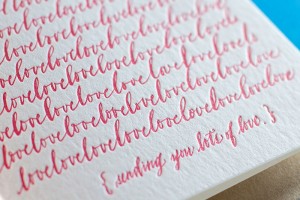 lovelovelovelove
lovelovelovelovelove
lovelovelovelovelove
lovelovelovelovelovelove
lovelovelovelovelovelove
lovelovelovelovelovelove
lovelovelovelovelovelovelove
lovelovelovelovelovelovelove
{ sending you lots of love }